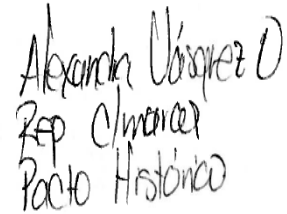 Alexandra Vásquez O
Rep C/marca
Pacto Histórico